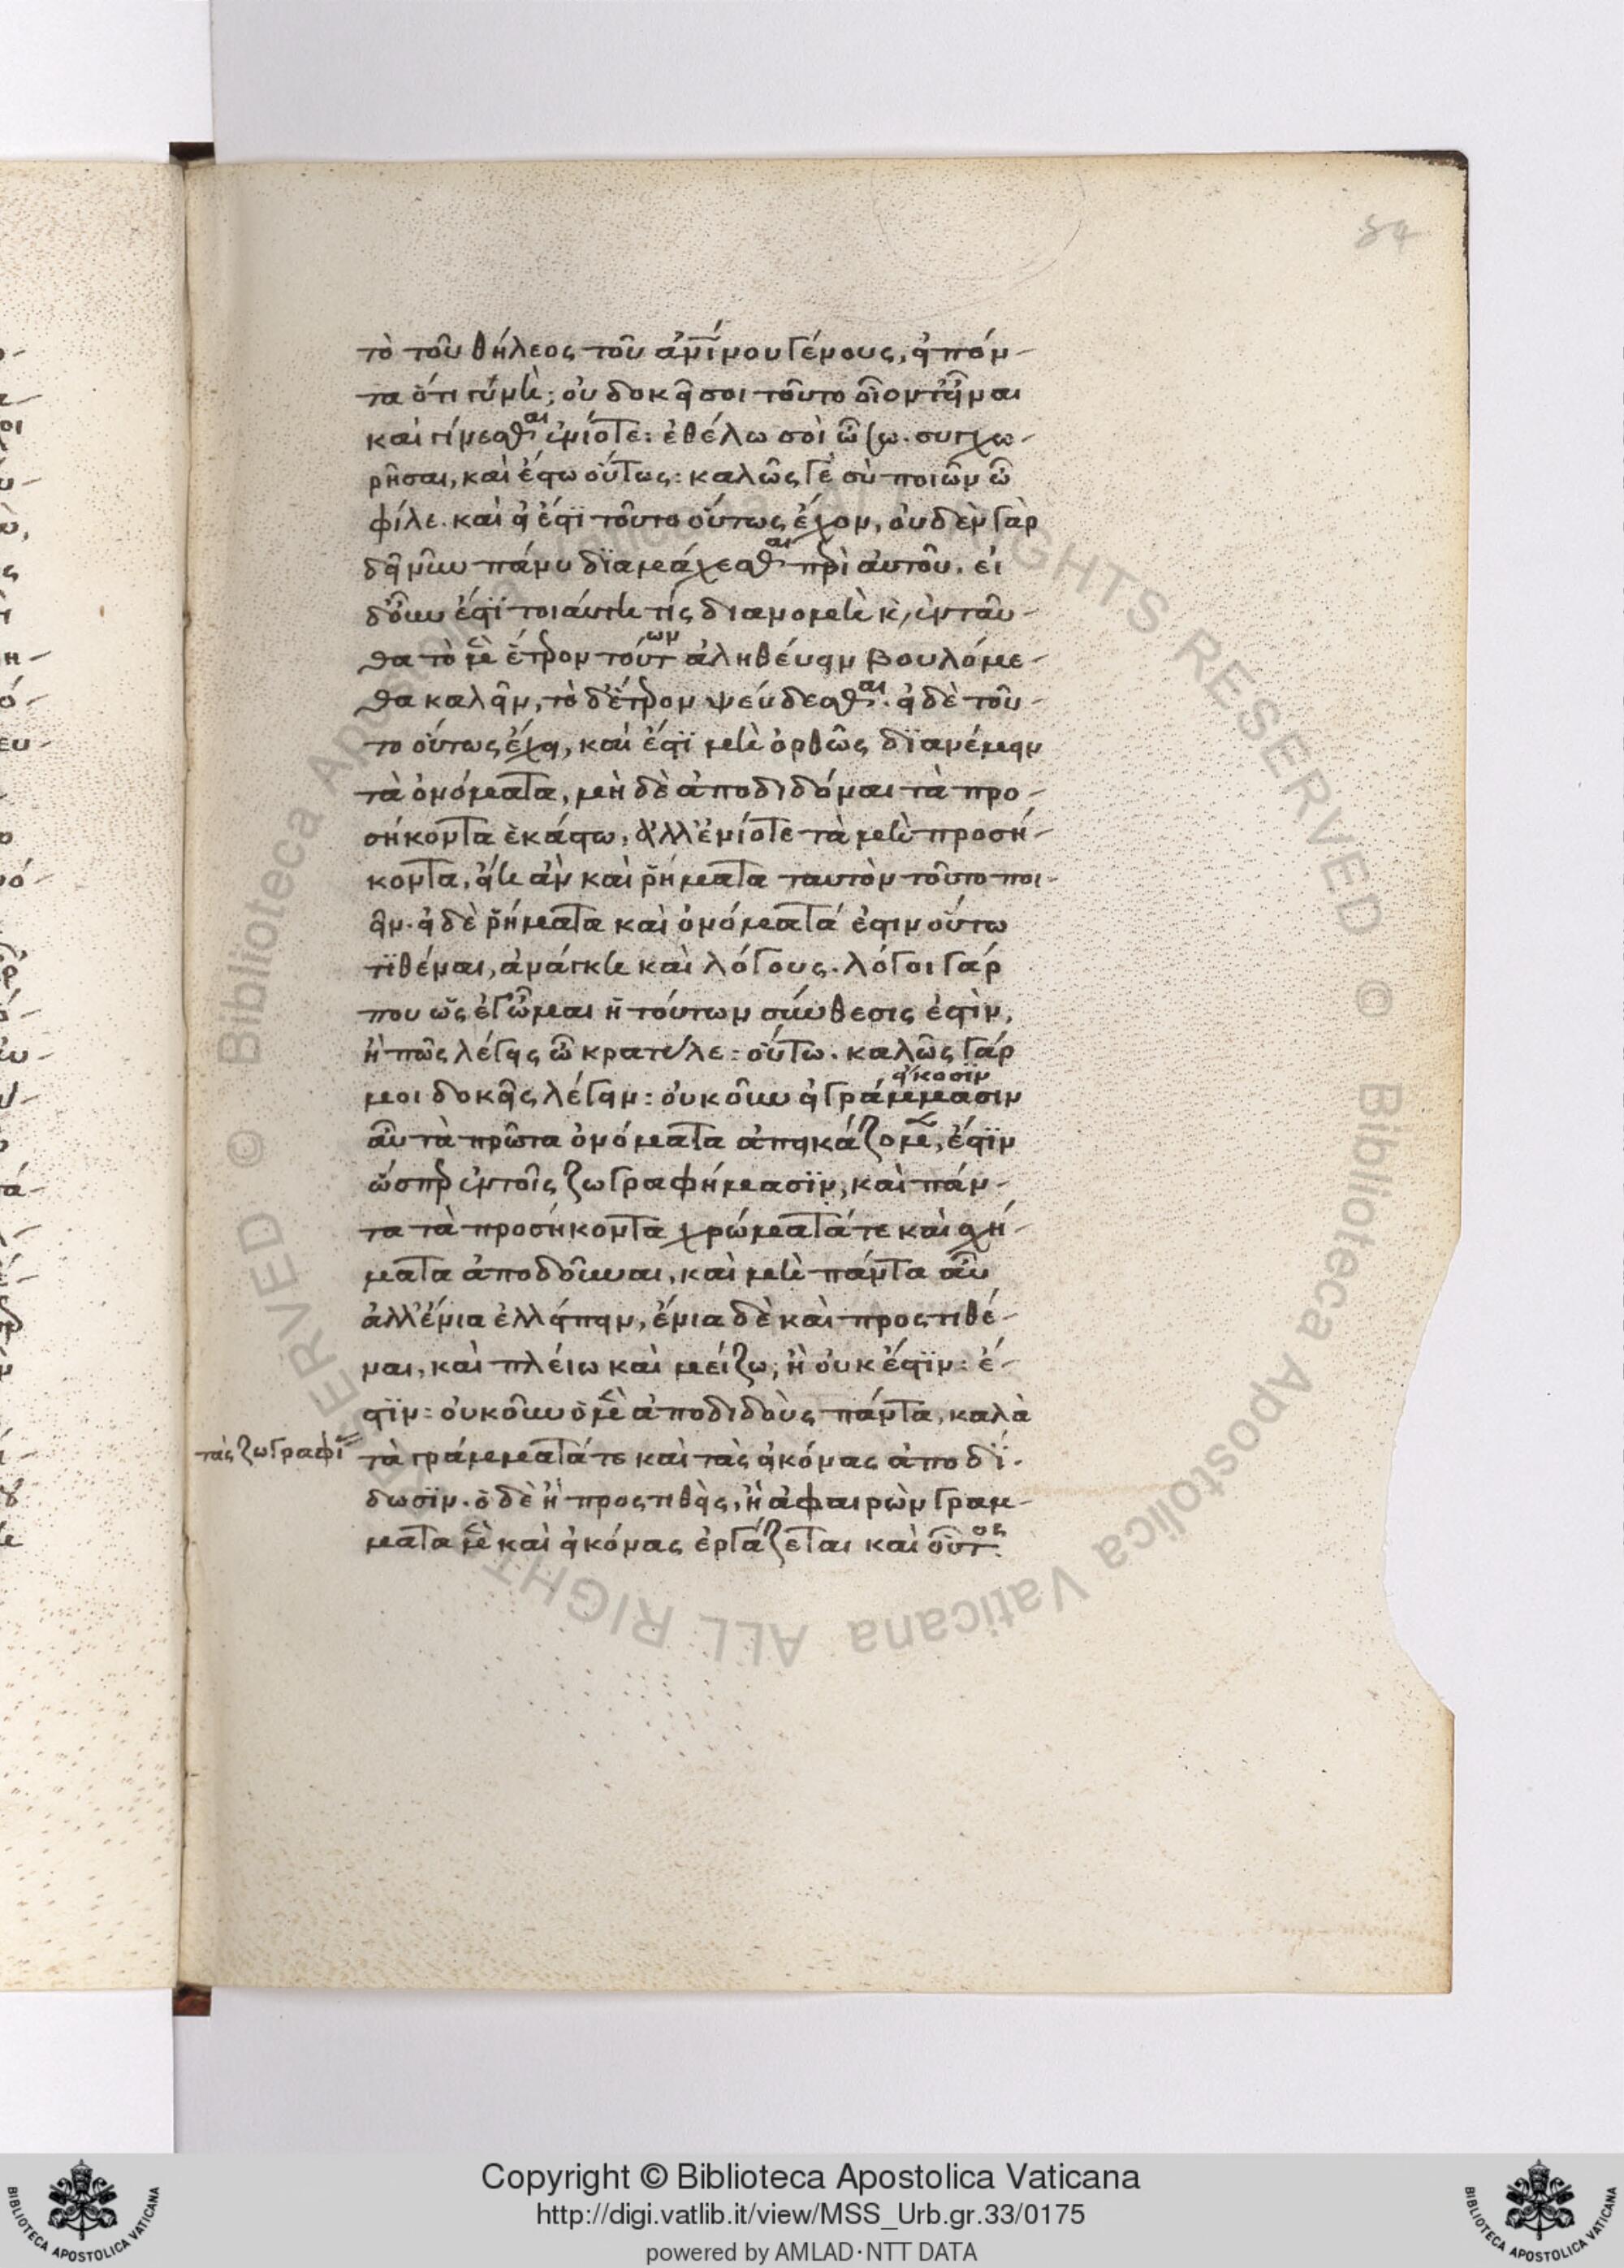 84
τὸ τοῦ θήλεος τοῦ ἀντίνου γένους, εἰπόν-
τα ὅτι γύνη; οὐ δοκεῖ σοι τοῦτο οἷον τ' εἶναι
καὶ γίνεσθαι ἐνίοτε: ἐθέλω σοὶ ὦ σω. συγχω-
ρῆσαι, καὶ ἔστω οὕτως: καλῶς γε σὺ ποιῶν ὦ
φίλε. καὶ εἰ ἔστι τοῦτο οὕτως ἔχον, οὐδὲν γὰρ
δεῖ νῦν πάνυ διαμάχεσθαι περὶ αὐτοῦ. εἰ
δ' οὖν ἔστι τοιαύτη τίς διανομὴ κ, ἐνταῦ-
θα τὸ μὲν ἕτερον τούτων ἀληθεύειν βουλόμε-
θα καλεῖν, τὸ δ' ἕτερον ψεύδεσθαι. εἰ δὲ τοῦ-
το οὕτως ἔχει, καὶ ἔστι μὴ ὀρθῶς διανέμειν
τὰ ὀνόματα, μὴ δὲ ἀποδιδόναι τὰ προ-
σήκοντα ἑκάστω, ἀλλ' ἐνίοτε τὰ μὴ προσή-
κοντα, εἴη ἂν καὶ ῥήματα ταυτὸν τοῦτο ποι-
εῖν. εἰ δὲ ῥήματα καὶ ὀνόματά ἐστιν οὕτω
τιθέναι, ἀνάγκη καὶ λόγους. λόγοι γάρ
που ὡς ἐγῶμαι ἡ τούτων σύνθεσις ἐστὶν,
ἢ πῶς λέγεις ὦ κρατύλε: οὕτω. καλῶς γάρ
μοι δοκεῖς λέγειν: οὐκοῦν εἰ γράμμασιν
εἰκοσϊν
αὖ τὰ πρῶτα ὀνόματα ἀπεικάζομεν, ἔστιν
ὥσπερ ἐν τοῖς ζωγραφήμασιν, καὶ πάν-
τα τὰ προσήκοντα χρώματά τε καὶ σχή-
ματα ἀποδοῦναι, καὶ μὴ πάντα αὖ
ἀλλ' ἔνια ἐλλείπειν, ἔνια δὲ καὶ προςτιθέ-
ναι, καὶ πλέιω καὶ μείζω, ἢ οὐκ ἔστιν: ἔ-
στιν: οὐκοῦν ὁ μὲν ἀποδιδοὺς πάντα, καλὰ
τὰς ζωγραφί
τὰ γράμματά τε καὶ τὰς εἰκόνας ἀποδί.
δωσιν. ὁ δὲ ἢ προςτιθεὶς, ἢ ἀφαιρὼν γραμ-
ματα μὲν καὶ εἰκόνας ἐργάζεται καὶ οὗτος
Copyright © Biblioteca Apostolica Vaticana
http://digi.vatlib.it/view/MSS_Urb.gr.33/0175
powered by AMLAD·NTT DATA